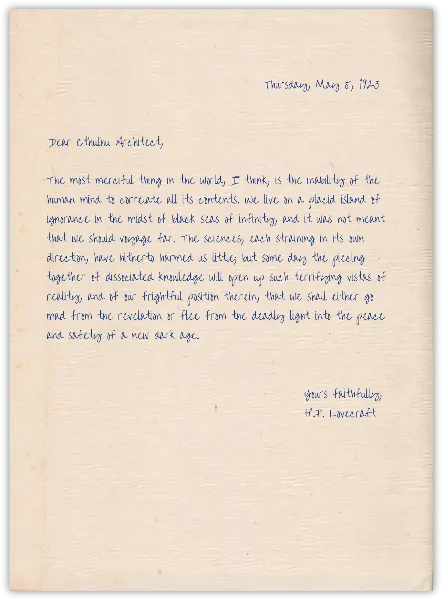 Thursday, May 5, 1923
Dear Cthulhu Architect,
The most merciful thing in the world, I think, is the inability of the
human mind to correlate all its contents. We live on a placid island of
ignorance in the midst of black seas of infinity, and it was not meant
that we should voyage far. The sciences, each straining in its own
direction, have hitherto harmed us little; but some day the piecing
together of dissociated knowledge will open up such terrifying vistas of
reality, and of our frightful position therein, that we shall either go
mad from the revelation or flee from the deadly light into the peace
and safety of a new dark age.
Yours faithfully,
H.P. Lovecraft